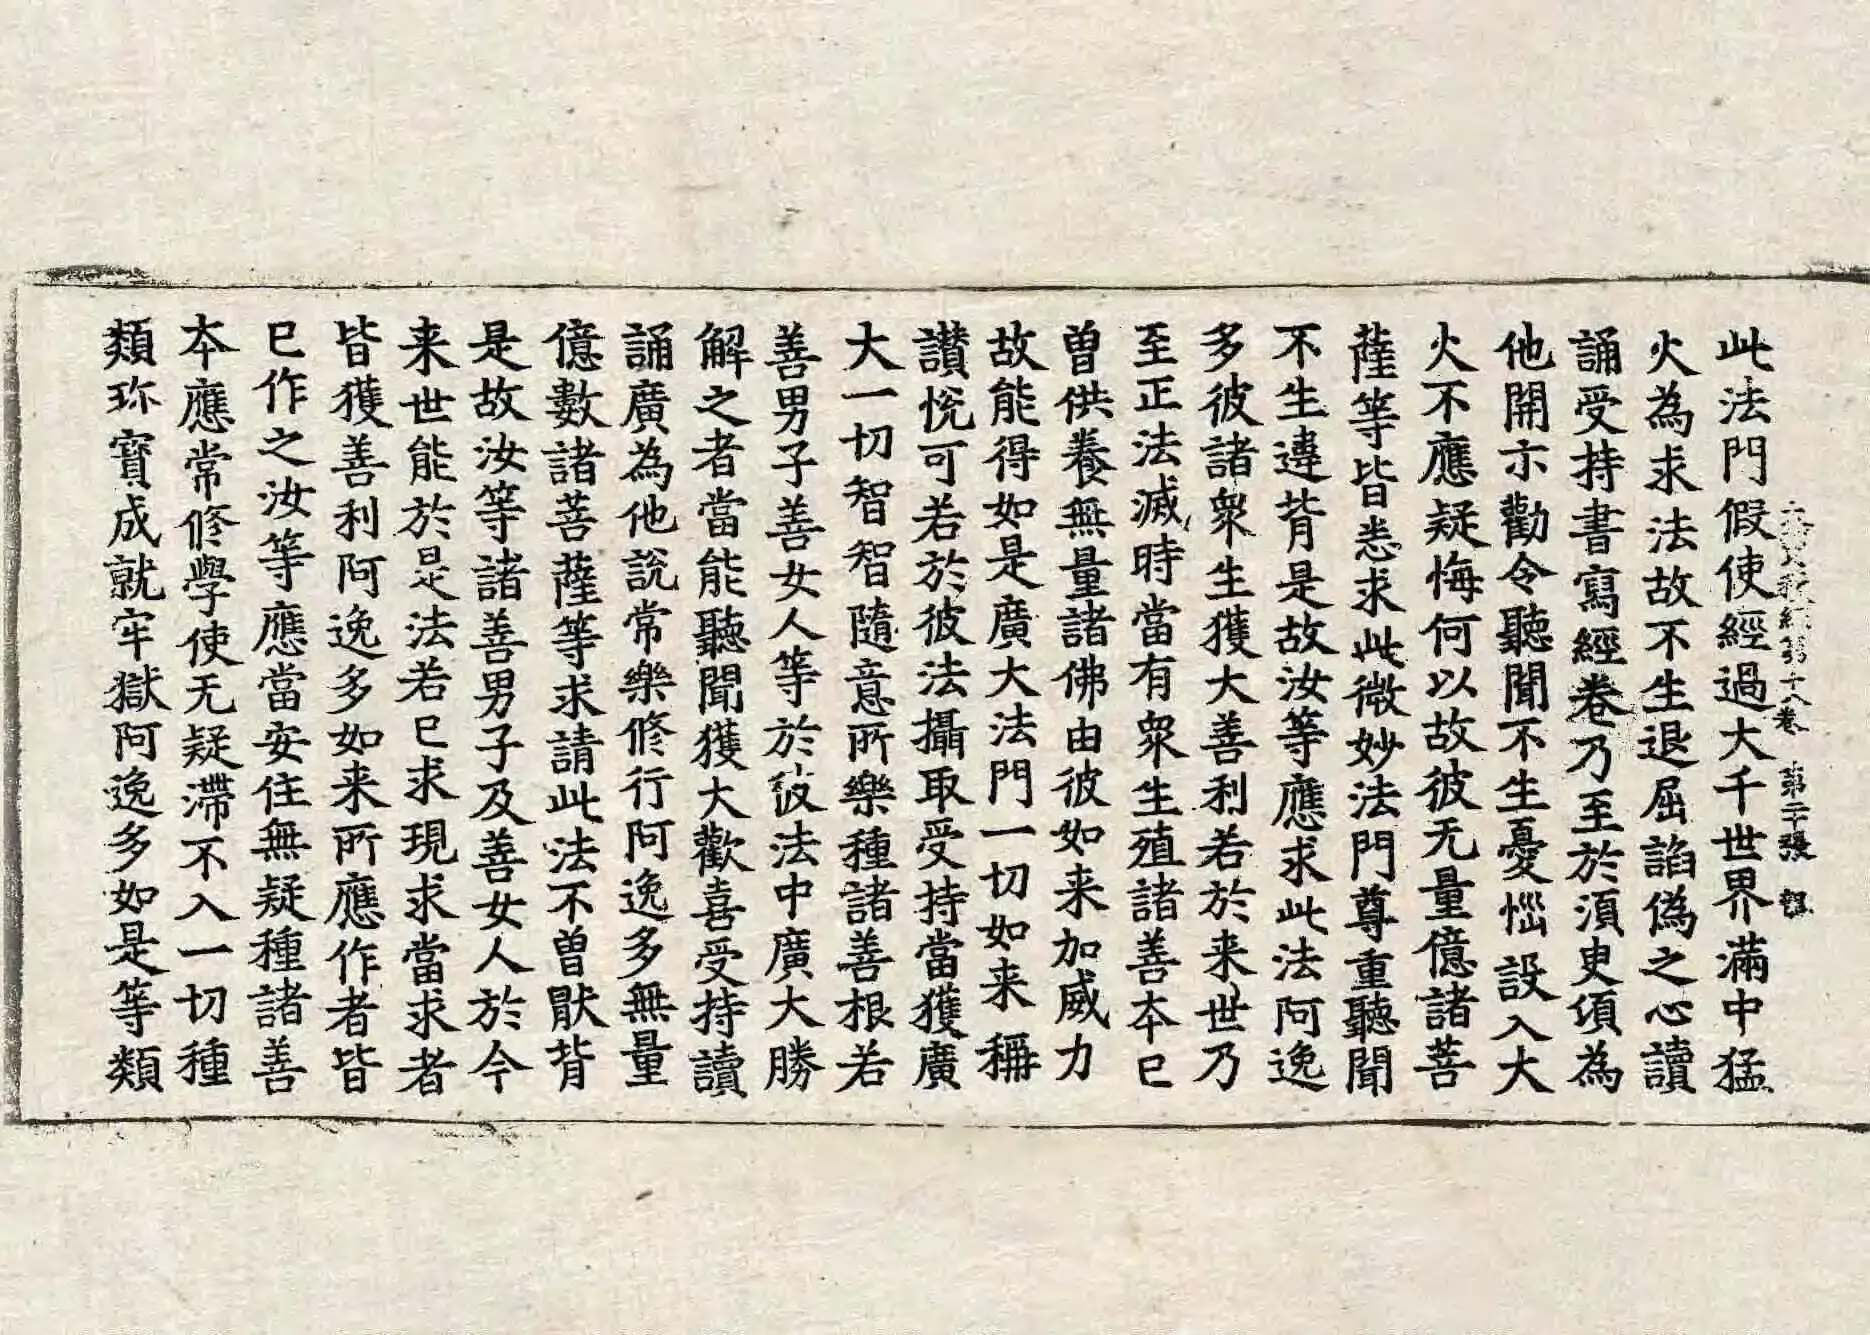 大寶積經第十八卷 第二十張
此法門假使經過大千世界滿中猛
火為求法故不生退屈諂偽之心讀
誦受持書寫經卷乃至於須臾頃為
他開示勸令聽聞不生憂惱設入大
火不應疑悔何以故彼无量億諸菩
薩等皆悉求此微妙法門尊重聽聞
不生違背是故汝等應求此法阿逸
多彼諸衆生獲大善利若於来世乃
至正法滅時當有衆生殖諸善本已
曽供養無量諸佛由彼如来加威力
故能得如是廣大法門一切如来稱
讃悅可若於彼法攝取受持當獲廣
大一切智智隨意所樂種諸善根若
善男子善女人等於彼法中廣大勝
解之者當能聽聞獲大歡喜受持讀
誦廣為他說常樂修行阿逸多無量
億數諸菩薩等求請此法不曽猒背
是故汝等諸善男子及善女人於今
来世能於是法若已求現求當求者
皆獲善利阿逸多如来所應作者皆
已作之汝等應當安住無疑種諸善
本應常修學使无疑滯不入一切種
類珎寶成就牢獄阿逸多如是等類